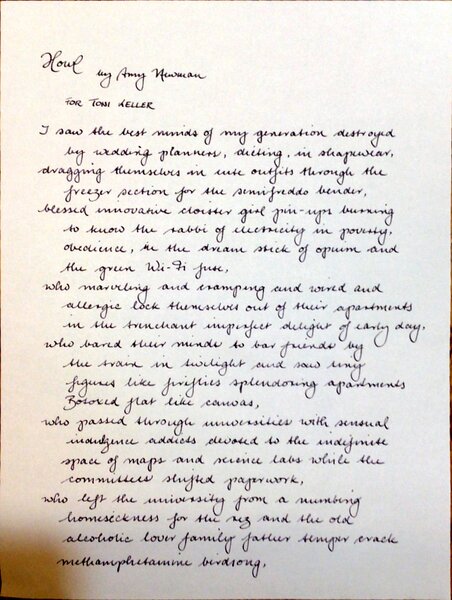 Howl by Amy Newman
FOR TONI KELLER
I saw the best minds of my generation destroyed
by wedding planners, dieting, in shapewear,
dragging themselves in cute outfits through the
freezer section for the semifreddo bender,
blessed innovative cloister girl pin-ups burning
to know the rabbi of electricity in poverty,
obedience, in the dream stick of opium and
the green Wi-Fi fuse,
who marveling and tramping and wired and
allergic lock themselves out of their apartments
in the trenchant imperfect delight of early day,
who bared their minds to bar friends by
the train in twilight and saw tiny
figures like fireflies splendoring apartments
Botoxed flat like canvas,
who passed through universities with sensual
indulgence addicts devoted to the indefinite
space of maps and science labs while the
committees shifted paperwork,
who left the university from a numbing
homesickness for the rez and the old
alcoholic lover family father temper crack
methamphetamine birdsong,